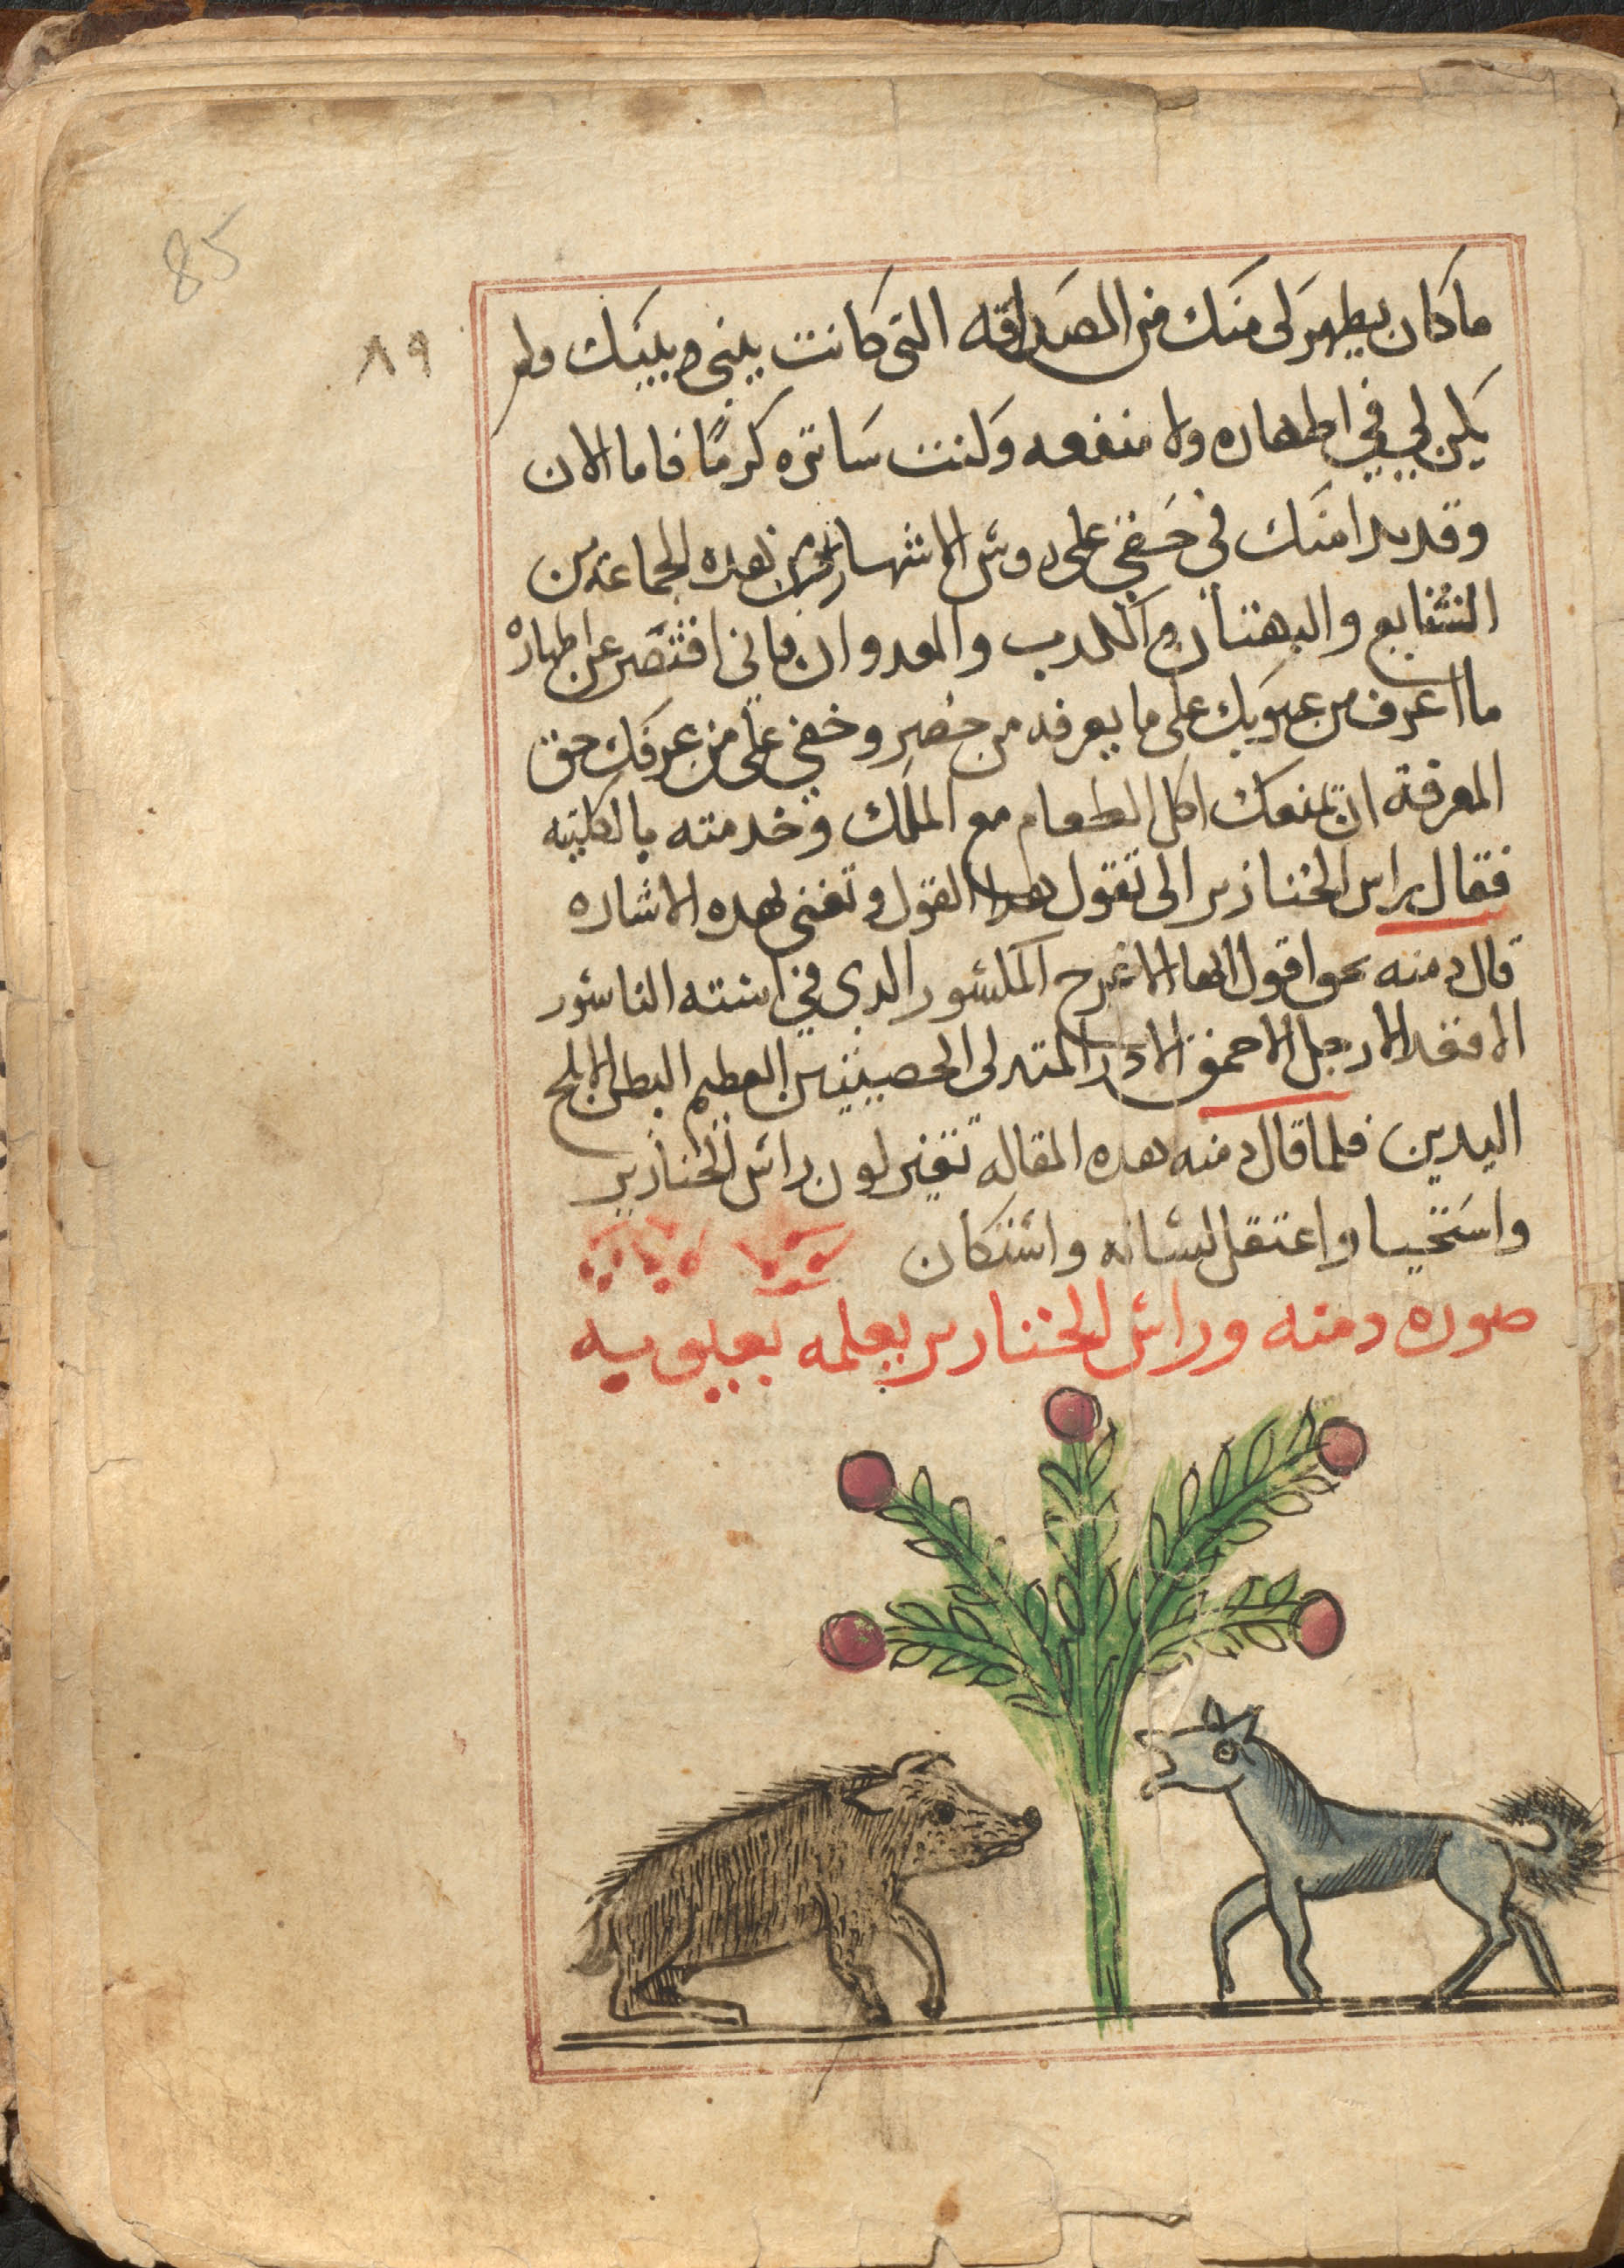 85
٨٩
ما كان يظهر لى منك من الصداقه التى كانت بينى وبينك ولم
يكن لي في اظهاره ولا منفعه وكنت ساتره كرمًا فاما الان
وقد بدا منك في حقي على روس الاشهاد هده الجماعة من
الشنايع والبهتان والكدب والعدوان فانى اقتصر عن اظهاره
ما اعرف من عيوبك على ما يعرفه من حضر وخفي على من عرفك حق
المعرفة ان تمنعك اكل الطعام مع الملك وخدمته بالكليه
فقال راس الخنازير الى تقول هدا القول وتعنى بهده الاشاره
قال دمنه نحو اقول ايها الاعرج المكسور الدى في استه الناسور
الافقد الارجل الاحمق الادر المتدلى الخصيتين العظيم البطن الابلح
اليدين فلما قال دمنه هده المقاله تغير لون راس الخنازير
واستحيا واعتقل لسانه واستكان
صوره دمنه وراس الخنازير يعلمه بعيوبه